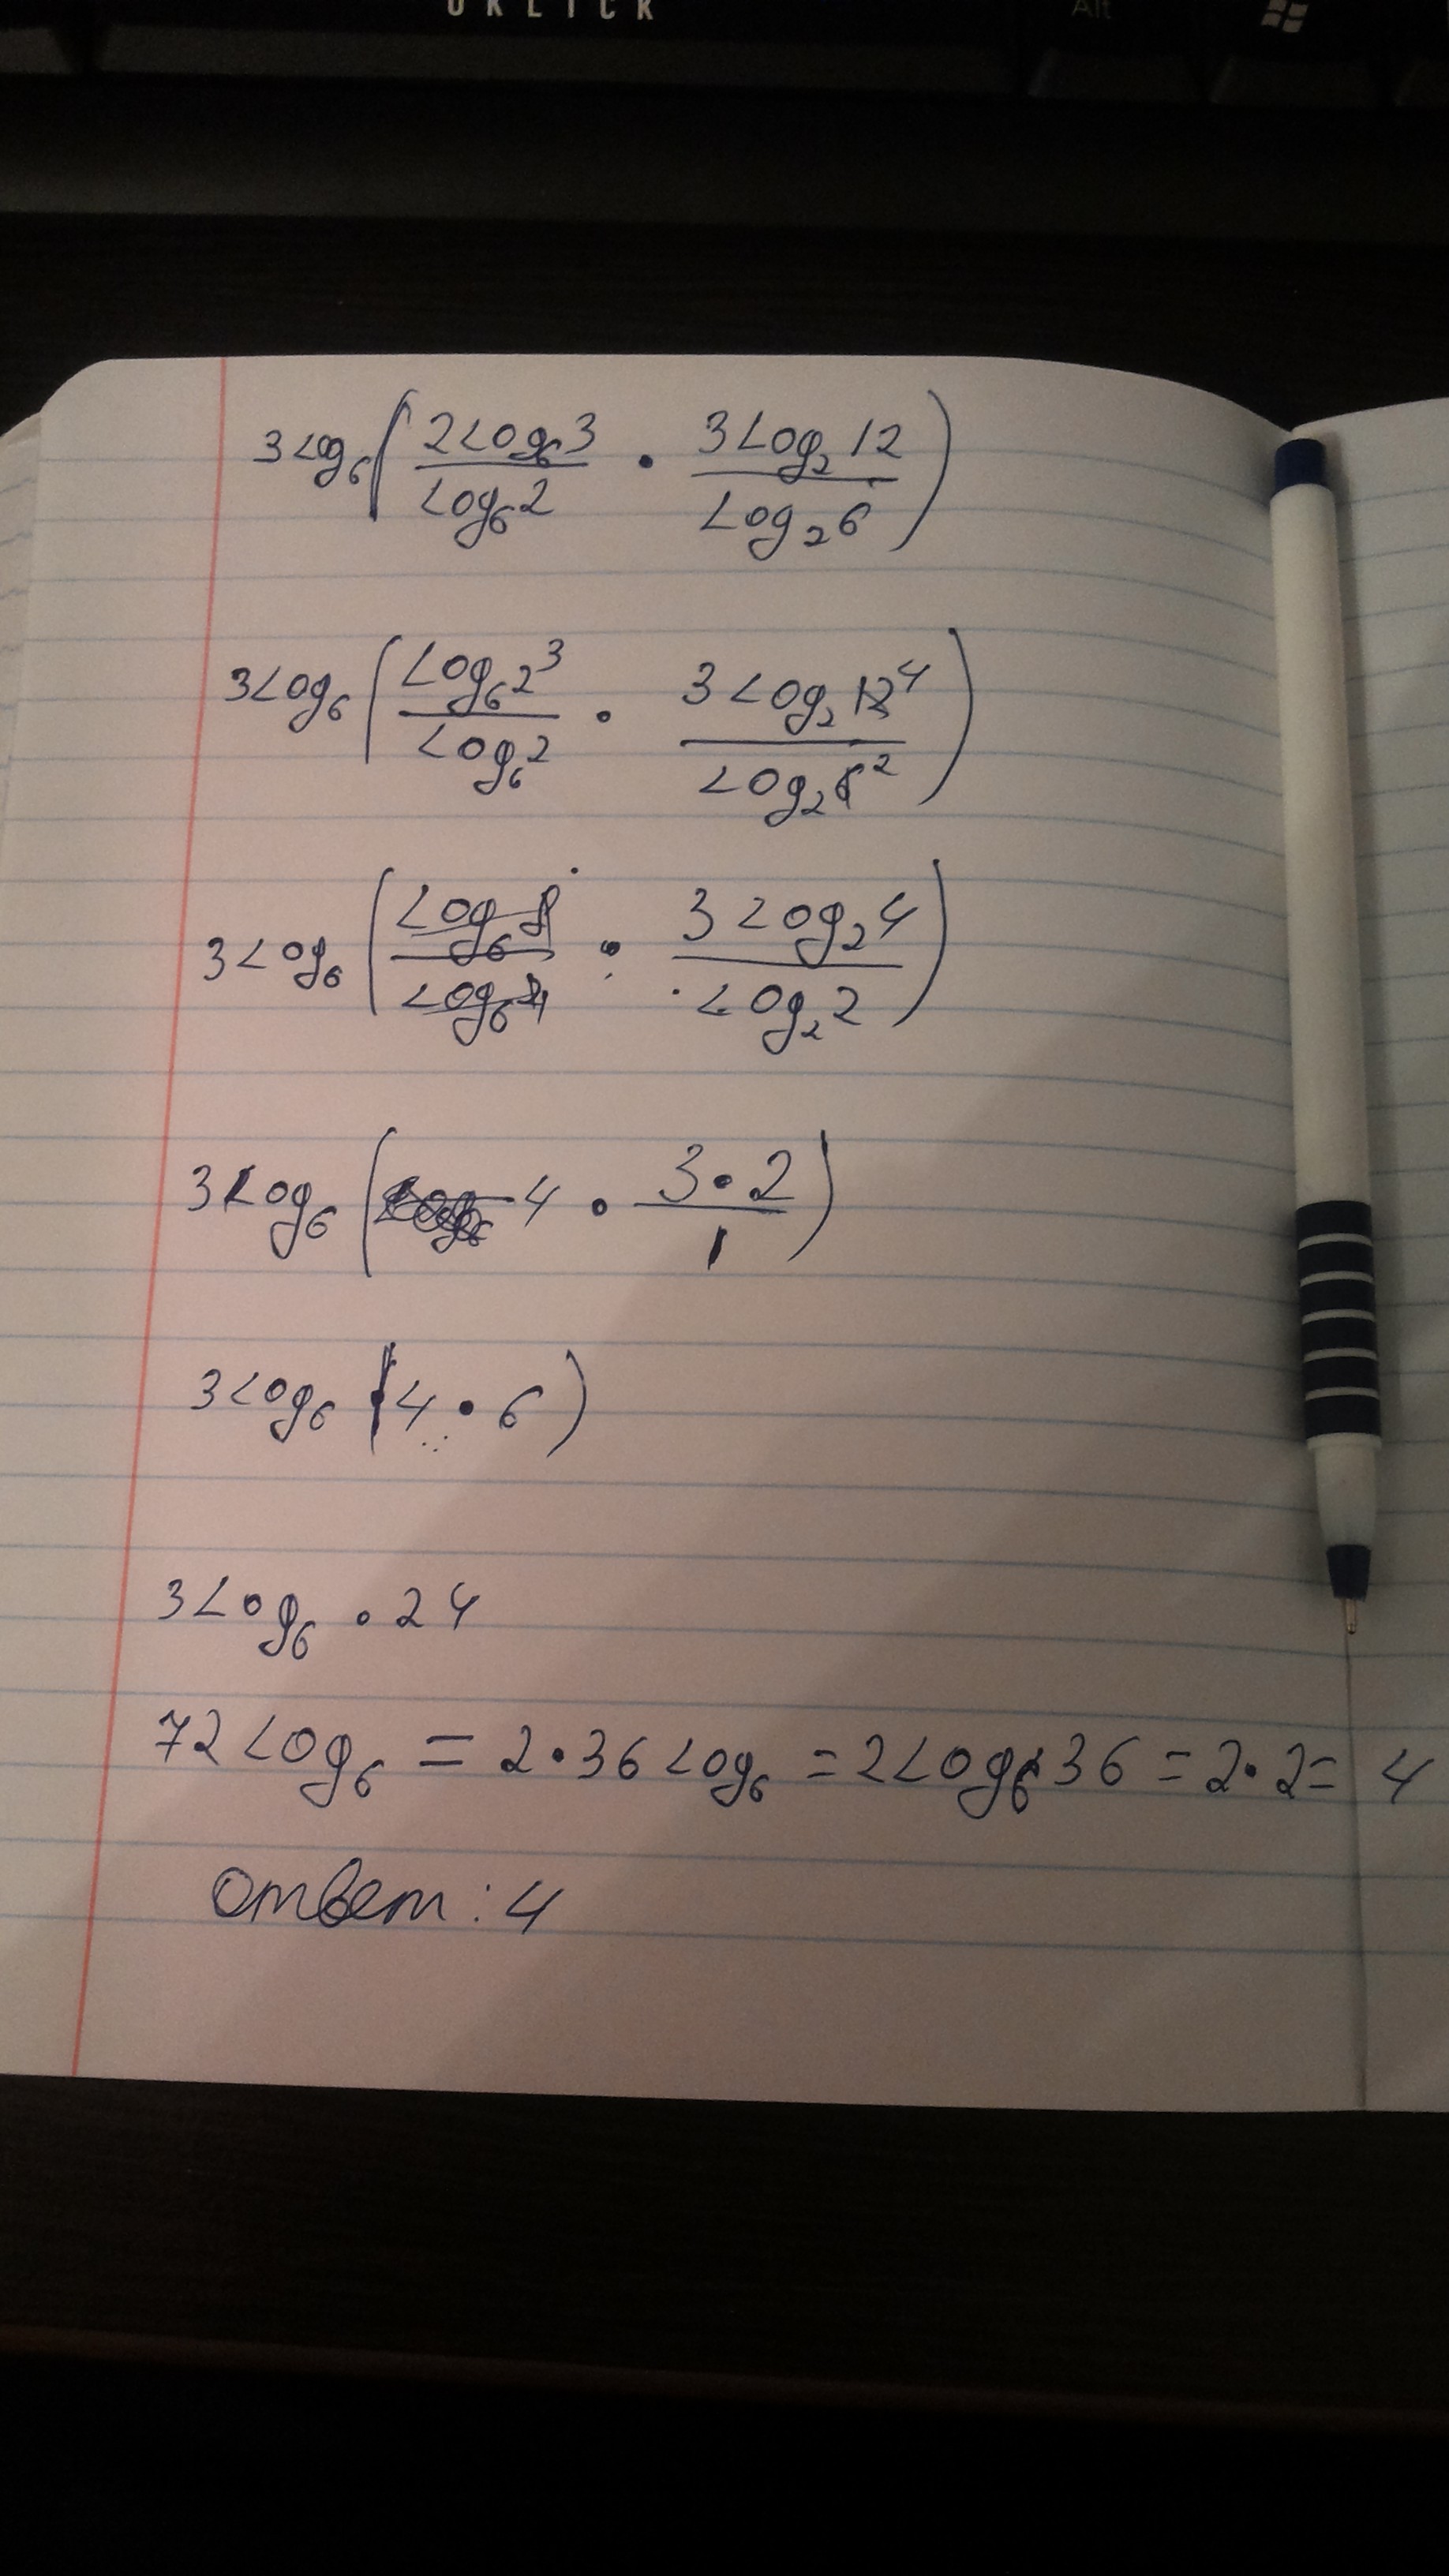 OKLICK Alt
3Log₆(2Log₆3/Log₆2 · 3Log₂12/Log₂6)
3Log₆(Log₆2³/Log₆2 · 3Log₂12⁴/Log₂6²)
3Log₆(Log₆8/Log₆2 · 3Log₂4/Log₂2)
3Log₆(4 · 3·2/1)
3Log₆(4 · 6)
3Log₆ · 24
72Log₆ = 2·36Log₆ = 2Log₆36 = 2·2 = 4
Ответ: 4